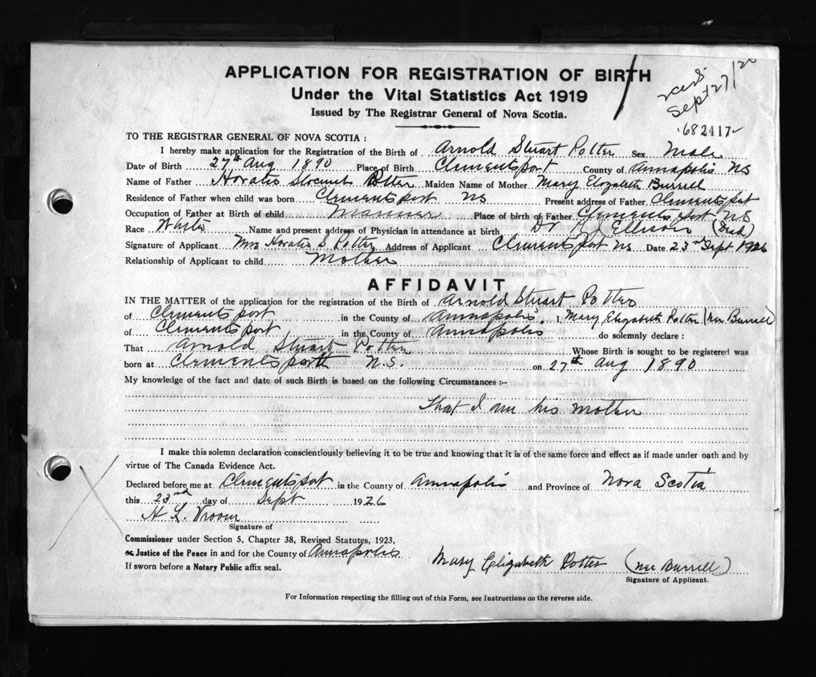 APPLICATION FOR REGISTRATION OF BIRTH
Under the Vital Statistics Act 1919
Issued by The Registrar General of Nova Scotia.
Sept 27/26
TO THE REGISTRAR GENERAL OF NOVA SCOTIA :
I hereby make application for the Registration of the Birth of Arnold Stuart Potter Sex Male
Date of Birth 27th Aug 1890 Place of Birth Clementsport County of Annapolis NS
Name of Father Horatio Potter Maiden Name of Mother Mary Elizabeth Burrell
Residence of Father when child was born Clementsport NS Present address of Father Clementsport
Occupation of Father at Birth of child Mariner Place of birth of Father Clementsport NS
Race White Name and present address of Physician in attendance at birth Dr Ellison (Dead)
Signature of Applicant Mrs Horatio S Potter Address of Applicant Clementsport NS Date 23rd Sept 1926
Relationship of Applicant to child Mother
AFFIDAVIT
IN THE MATTER of the application for the registration of the Birth of Arnold Stuart Potter
of Clementsport in the County of Annapolis. I, Mary Elizabeth Potter (nee Burrell)
of Clementsport in the County of Annapolis do solemnly declare :
That Arnold Stuart Potter Whose Birth is sought to be registered was
born at Clementsport N.S. on 27th Aug 1890
My knowledge of the fact and date of such Birth is based on the following Circumstances :-
That I am his mother
I make this solemn declaration conscientiously believing it to be true and knowing that it is of the same force and effect as if made under oath and by
virtue of The Canada Evidence Act.
Declared before me at Clementsport in the County of Annapolis and Province of Nova Scotia
this 23rd day of Sept 1926
H L Vroom
Signature of
Commissioner under Section 5, Chapter 38, Revised Statutes, 1923,
or Justice of the Peace in and for the County of Annapolis
If sworn before a Notary Public affix seal.
Mary Elizabeth Potter (nee Burrell)
Signature of Applicant.
For Information respecting the filling out of this Form, see Instructions on the reverse side.